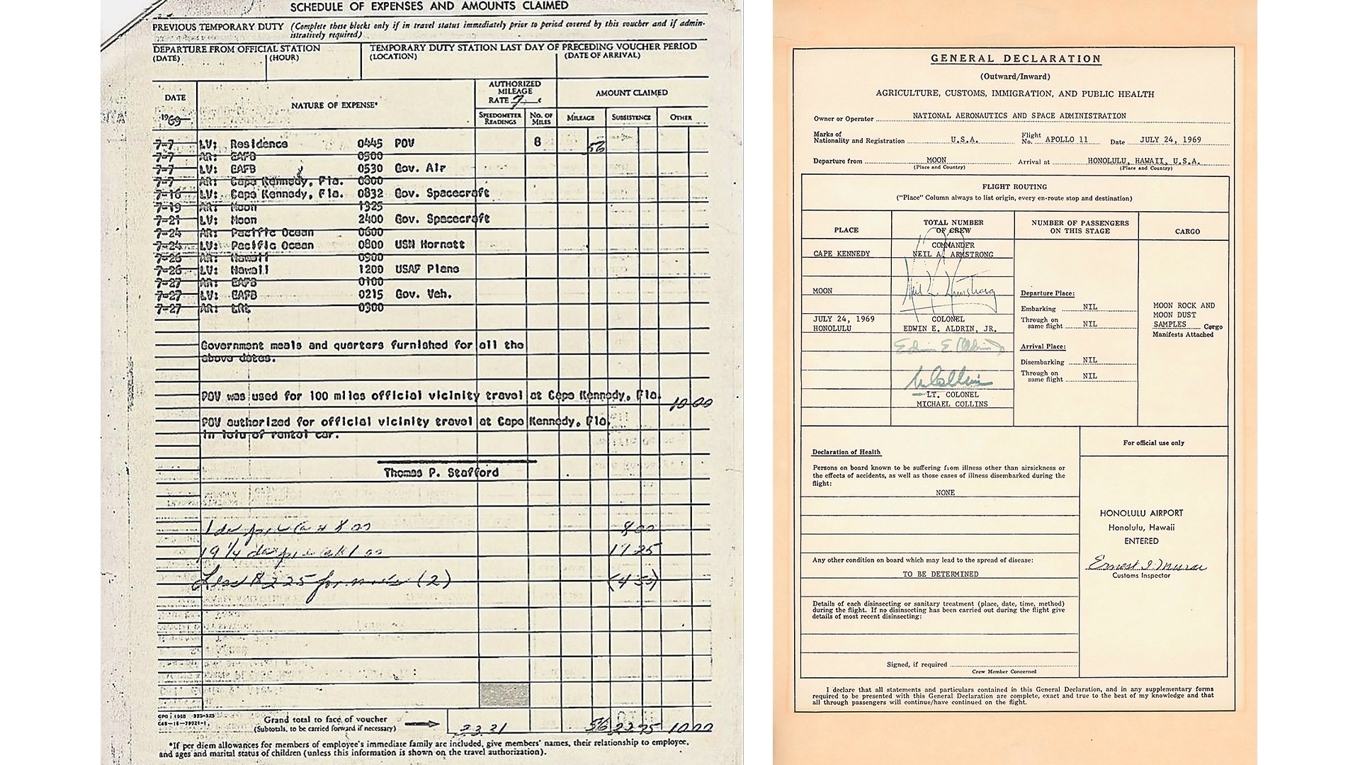 SCHEDULE OF EXPENSES AND AMOUNTS CLAIMED
PREVIOUS TEMPORARY DUTY (Complete these blocks only if in travel status immediately prior to period covered by this voucher and if admin-
istratively required)
DEPARTURE FROM OFFICIAL STATION
(DATE) (HOUR)
TEMPORARY DUTY STATION LAST DAY OF PRECEDING VOUCHER PERIOD
(LOCATION) (DATE OF ARRIVAL)
DATE
1969
NATURE OF EXPENSE*
AUTHORIZED
MILEAGE
RATE 7 ¢
AMOUNT CLAIMED
SPEEDOMETER
READINGS
NO. OF
MILES
MILEAGE
SUBSISTENCE
OTHER
7-7 LV: Residence 0445 POV 8 56
7-7 AR: EAFB 0500
7-7 LV: EAFB 0530 Gov. Air
7-7 AR: Cape Kennedy, Fla. 0800
7-16 LV: Cape Kennedy, Fla. 0832 Gov. Spacecraft
7-19 AR: Moon 1325
7-21 LV: Moon 2400 Gov. Spacecraft
7-24 AR: Pacific Ocean 0600
7-24 LV: Pacific Ocean 0800 USN Hornett
7-26 AR: Hawaii 0900
7-26 LV: Hawaii 1200 USAF Plane
7-27 AR: EAFB 0100
7-27 LV: EAFB 0215 Gov. Veh.
7-27 AR: 0300
Government meals and quarters furnished for all the
above dates.
POV was used for 100 miles official vicinity travel at Cape Kennedy, Fla. 10.00
POV authorized for official vicinity travel at Cape Kennedy, Fla.
in of rental car.
Thomas P. Stafford
1 8 00 8 00
19 1/4 1 00
Less 2.25 for (2)
Grand total to face of voucher
(Subtotals, to be carried forward if necessary)
33.31 56 22.75 10.00
*If per diem allowances for members of employee's immediate family are included, give members' names, their relationship to employee,
and ages and marital status of children (unless this information is shown on the travel authorization).
GENERAL DECLARATION
(Outward/Inward)
AGRICULTURE, CUSTOMS, IMMIGRATION, AND PUBLIC HEALTH
Owner or Operator NATIONAL AERONAUTICS AND SPACE ADMINISTRATION
Marks of
Nationality and Registration U.S.A. Flight
No. APOLLO 11 Date JULY 24, 1969
Departure from MOON
(Place and Country)
Arrival at HONOLULU, HAWAII, U.S.A.
(Place and Country)
FLIGHT ROUTING
("Place" Column always to list origin, every en-route stop and destination)
PLACE
TOTAL NUMBER
OF CREW
NUMBER OF PASSENGERS
ON THIS STAGE
CARGO
CAPE KENNEDY
MOON
JULY 24, 1969
HONOLULU
COMMANDER
NEIL A. ARMSTRONG
Neil A. Armstrong
COLONEL
EDWIN E. ALDRIN, JR.
Edwin E. Aldrin
M Collins
LT. COLONEL
MICHAEL COLLINS
Departure Place:
Embarking NIL
Through on
same flight NIL
Arrival Place:
Disembarking NIL
Through on
same flight NIL
MOON ROCK AND
MOON DUST
SAMPLES Cargo
Manifests Attached
Declaration of Health
Persons on board known to be suffering from illness other than airsickness or
the effects of accidents, as well as those cases of illness disembarked during the
flight:
NONE
Any other condition on board which may lead to the spread of disease:
TO BE DETERMINED
Details of each disinsecting or sanitary treatment (place, date, time, method)
during the flight. If no disinsecting has been carried out during the flight give
details of most recent disinsecting:
Signed, if required
Crew Member Concerned
For official use only
HONOLULU AIRPORT
Honolulu, Hawaii
ENTERED
Ernest I. Murai
Customs Inspector
I declare that all statements and particulars contained in this General Declaration, and in any supplementary forms
required to be presented with this General Declaration are complete, exact and true to the best of my knowledge and that
all through passengers will continue/have continued on the flight.